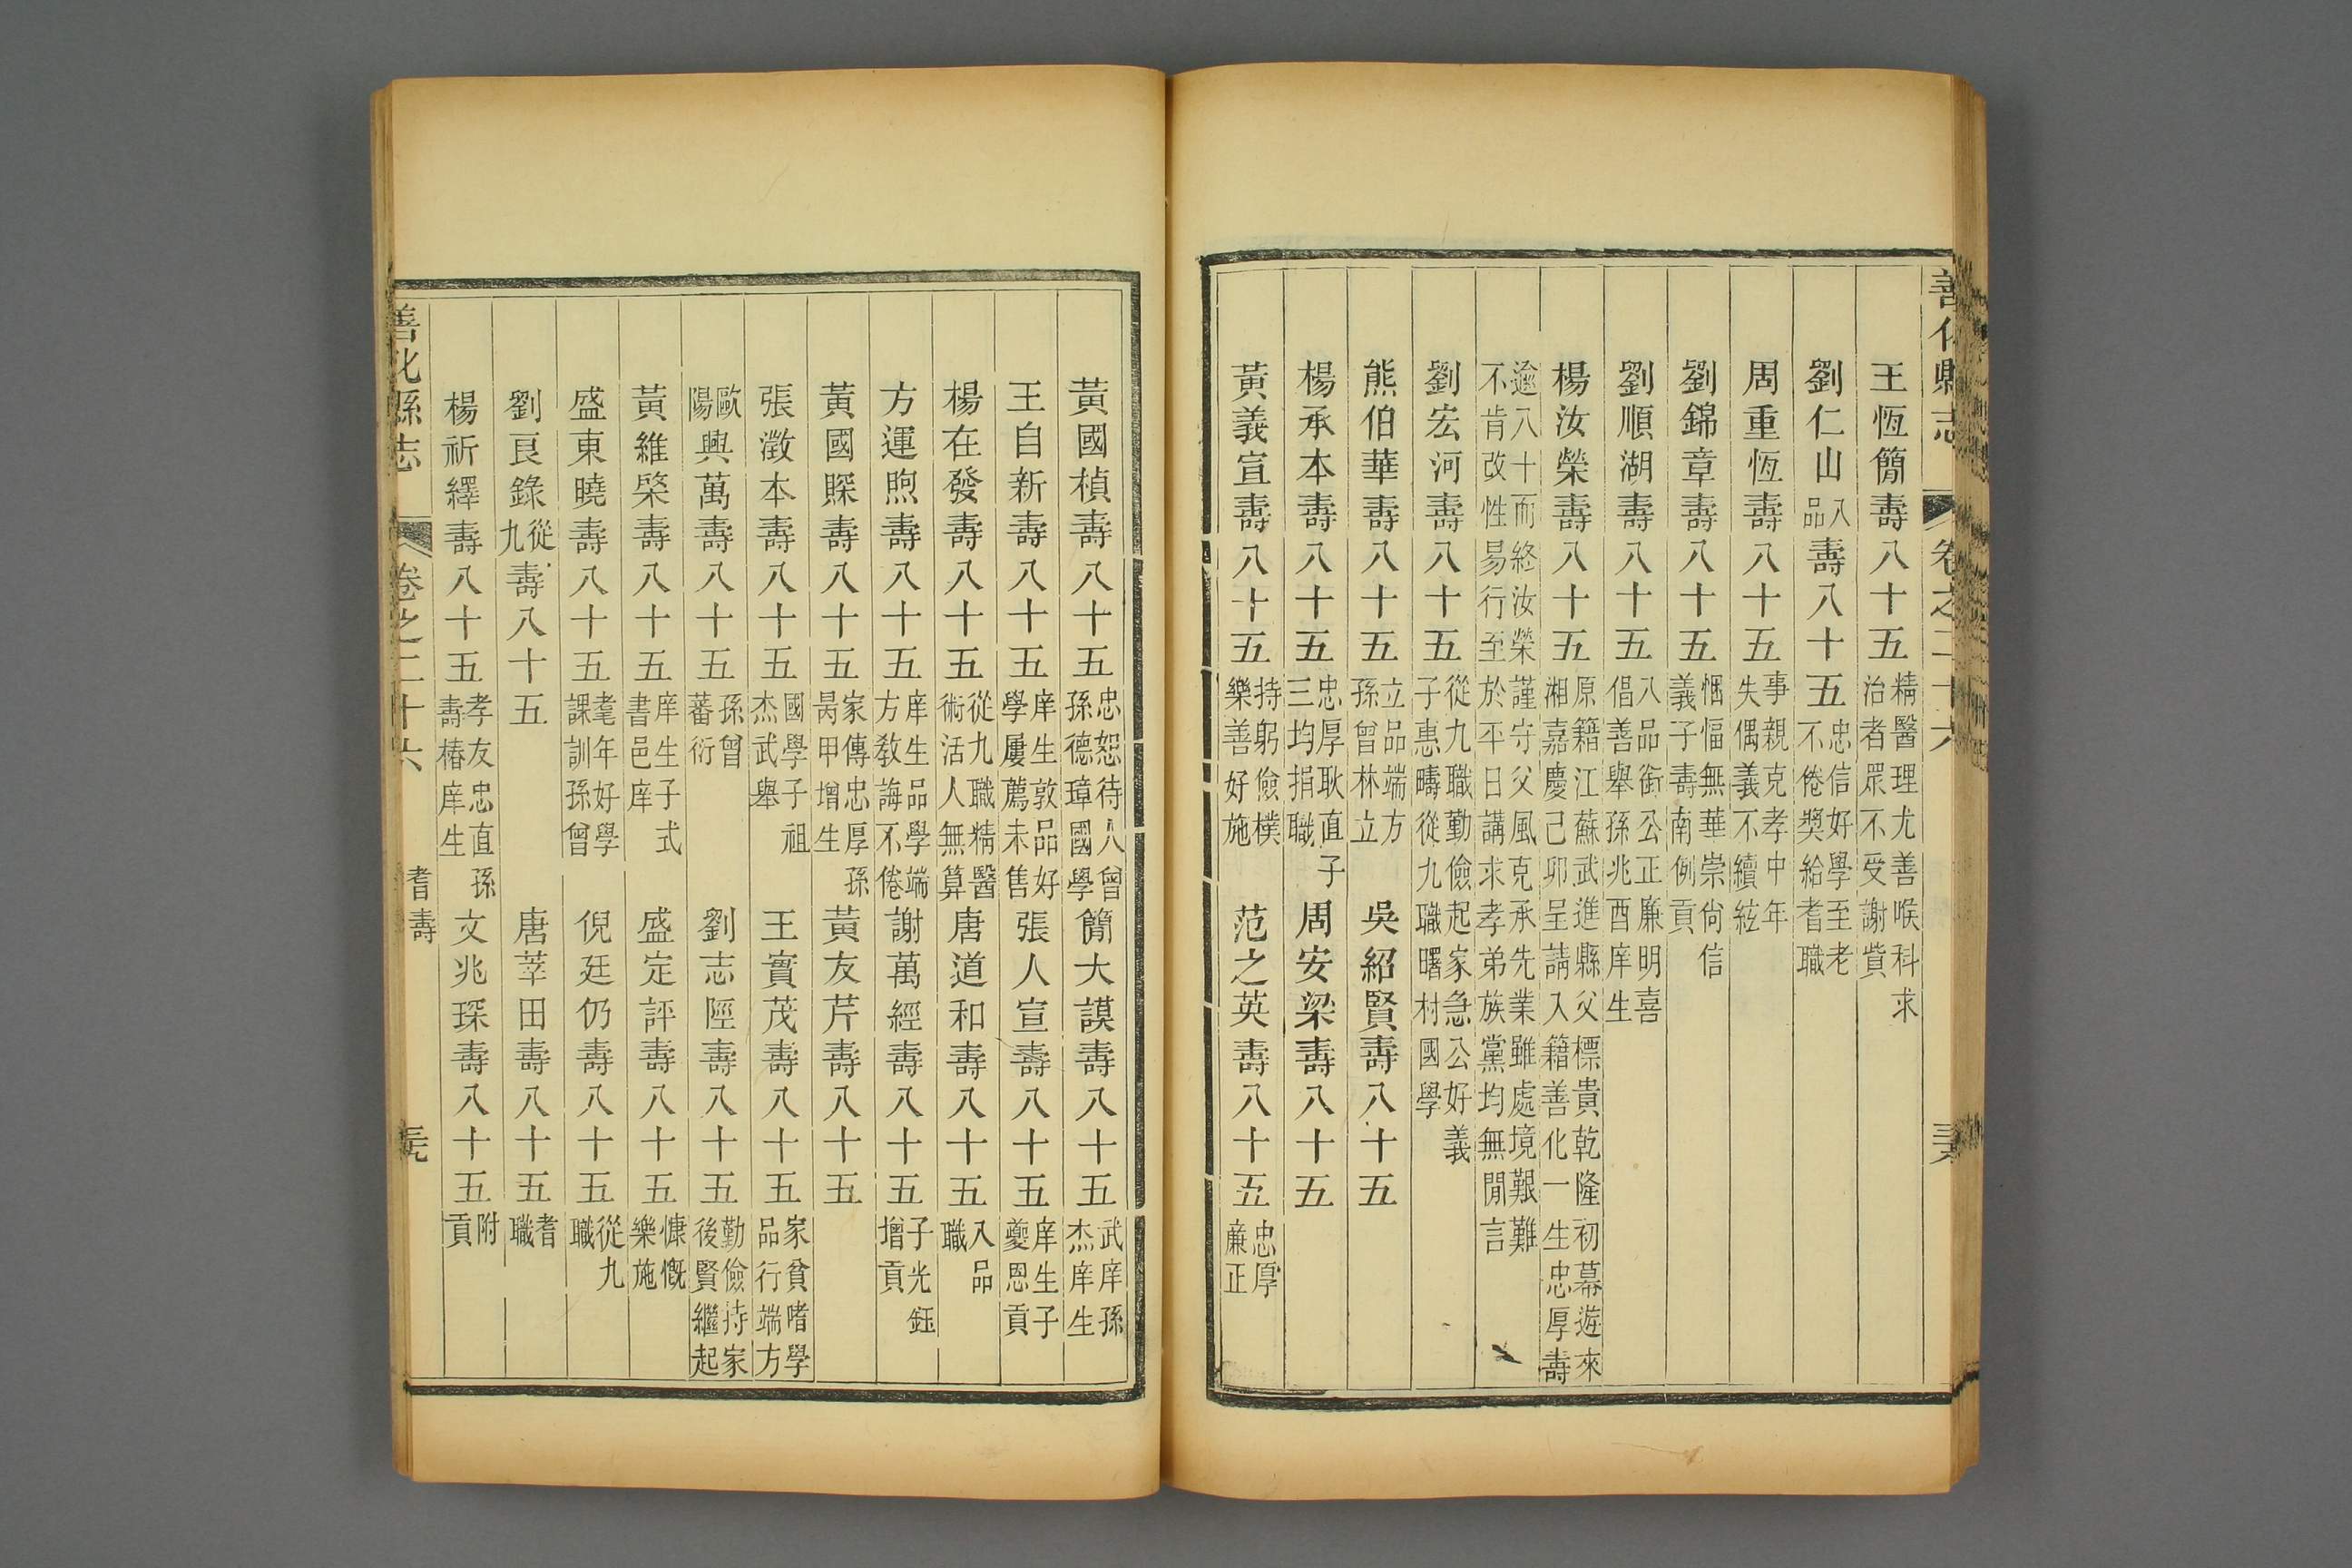 善化縣志 卷之二十六
王恆簡壽八十五 精醫理尤善喉科求治者眾不受謝貲
劉仁山 八品 壽八十五 忠信好學至老不倦獎給耆職
周重恆壽八十五 事親克孝中年失偶義不續絃
劉錦章壽八十五 悃愊無華崇尙信義子壽南例貢
劉順湖壽八十五 八品銜公正廉明喜倡善舉孫兆酉庠生
楊汝榮壽八十五 原籍江蘇武進縣父標貴乾隆初幕遊來湘嘉慶己卯呈請入籍善化一生忠厚壽
逾八十而終汝榮謹守父風克承先業雖處境艱難不肯改性易行至於平日講求孝弟族黨均無閒言
劉宏河壽八十五 從九職勤儉起家急公好義子惠疇從九職曙村國學
熊伯華壽八十五 立品端方孫曾林立 吳紹賢壽八十五
楊承本壽八十五 忠厚耿直子三均捐職 周安梁壽八十五
黃義宣壽八十五 持躬儉樸樂善好施 范之英壽八十五 忠厚廉正
黃國楨壽八十五 忠恕待人曾孫德璋國學 簡大謨壽八十五 武庠孫杰庠生
王自新壽八十五 庠生敦品好學屢薦未售 張人宣壽八十五 庠生子夔恩貢
楊在發壽八十五 從九職精醫術活人無算 唐道和壽八十五 八品職
方運煦壽八十五 庠生品學端方教誨不倦 謝萬經壽八十五 子光鈺增貢
黃國賝壽八十五 家傳忠厚孫昺甲增生 黃友芹壽八十五
張澂本壽八十五 國學子祖杰武舉 王實茂壽八十五 家貧嗜學品行端方
歐陽興萬壽八十五 孫曾蕃衍 劉志陘壽八十五 勤儉持家後賢繼起
黃維棨壽八十五 庠生子式書邑庠 盛定評壽八十五 慷慨樂施
盛東曉壽八十五 耄年好學課訓孫曾 倪廷仍壽八十五 從九職
劉良錄 從九 壽八十五 唐莘田壽八十五 耆職
楊祈繹壽八十五 孝友忠直孫壽椿庠生 文兆琛壽八十五 附貢
善化縣志 卷之二十六 耆壽